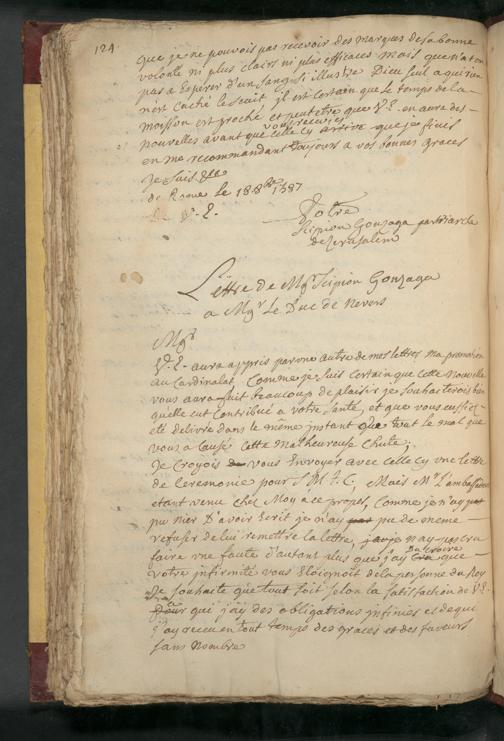 124
que je ne pouvois pas recevoir des marques de sa bonne
volonté ni plus clairs ni plus efficaces mais que n'a t'on
pas a Esperer d'un sang si illustre Dieu seul a qui rien
n'est Caché le scait, il est certain que le temps de la
moisson est proché et peut etre que V. E. en aura des
nouvelles avant que celle cy arrive que je finis
vous recevies
en me recommandant toujours a vos bonnes graces
Je suis &c
de Rome le 18 1587
de V. E.
Votre
Scipion Gonzaga patriarche
de Jerusalem
Lettre de Mgr Scipion Gonzaga
a Mgr Le Duc de Nevers
Mgr
V. E. aura appris par une autre de mes lettres ma promotion
au Cardinalat, Comme je suis certain que cette nouvelle
vous aura fait beaucoup de plaisir je souhaiterois bien
quelle eut Contribué a votre santé, et que vous eussiez
eté delivré dans le même instant que tout le mal que
vous a Causé cette malheureuse Chute;
Je Croyois vous Envoyer avec celle cy une lettre
de Ceremonie pour S M. T. C, Mais Mr L'ambassadeur
etant venu chez Moy a ce propos, Comme je n'ay
pu nier D'avoir Ecrit je n'ay pu de meme
refuser de lui remettre la lettre, n'ay pas cru
faire une faute d'autant plus que j'ay Du croire que
votre infirmité vous Eloignoit de la personne du Roy
Je souhaite que tout soit selon la satisfaction de V. E.
qui j'ay des obligations infinies et de qui
j'ay receu en tout temps des graces et des faveurs
sans nombre